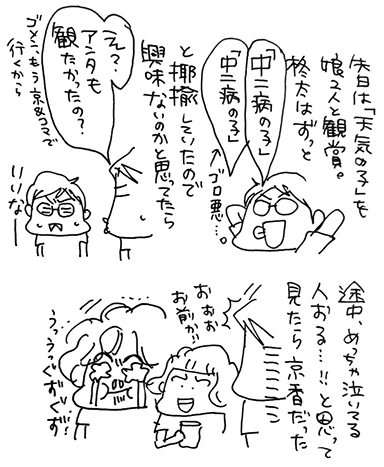 先日は「天気の子」を
娘2人と観賞。
柊太はずっと
「中二病の子」
「中二病の子」
↑ゴロ悪…。
と揶揄していたので
興味ないのかと思ってたら
え？
アンタも
観たかったの？
ゴメン、もう京&コマで
行くから
いいなー
途中、めっちゃ泣いてる
人おる…!!と思って
見たら京香だった
おぉぉ
お前か!!
う、うっぐずぐず!